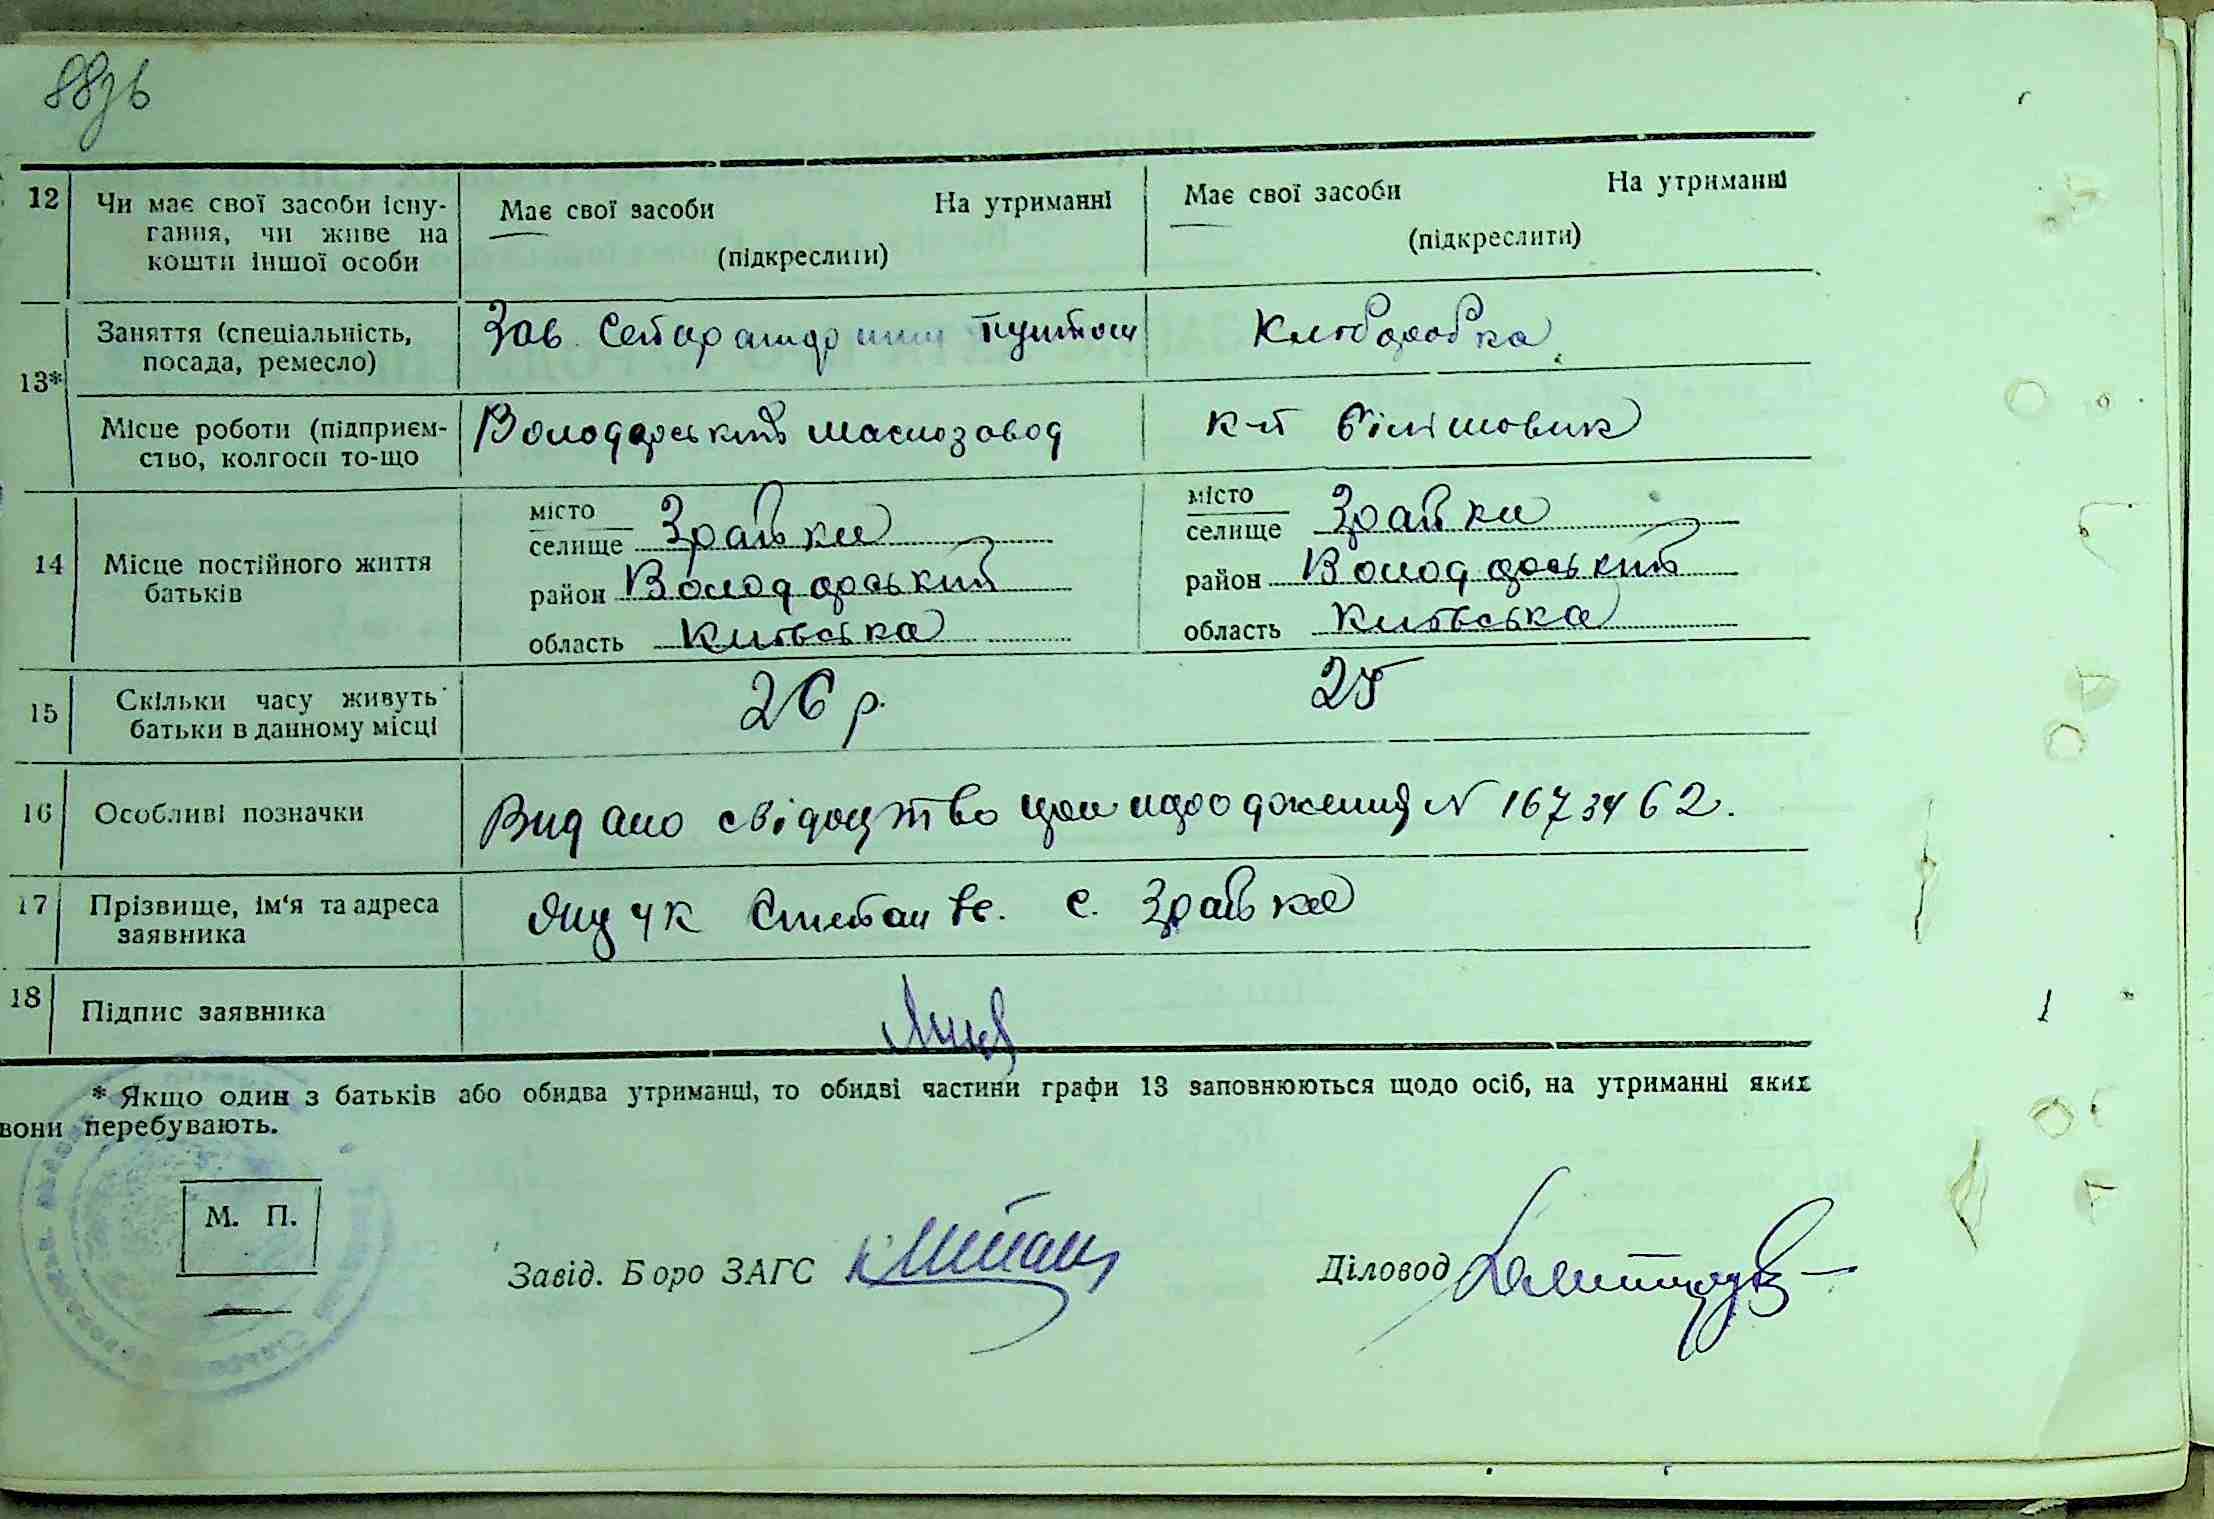 88зв
12 Чи має свої засоби існу-
гання, чи живе на
кошти іншої особи
Має свої засоби На утриманні
(підкреслити)
Має свої засоби На утриманні
(підкреслити)
13*
Заняття (спеціальність,
посада, ремесло)
Зав. Сепараторним пунктом
Місце роботи (підприєм-
ство, колгосп то-що
Володарський маслозавод
к-п більшовик
14 Місце постійного життя
батьків
місто
селище Зрайки
район Володарський
область Київська
місто
селище Зрайки
район Володарський
область Київська
15 Скільки часу живуть
батьки в данному місці
26 р. 25
16 Особливі позначки
Видано свідоцтво народження N 1673462.
17 Прізвище, ім'я та адреса
заявника
Янчук Степан с. Зрайки
18 Підпис заявника
* Якщо один з батьків або обидва утриманці, то обидві частини графи 13 заповнюються щодо осіб, на утриманні яких
вони перебувають.
М. П.
Завід. Боро ЗАГС
Діловод